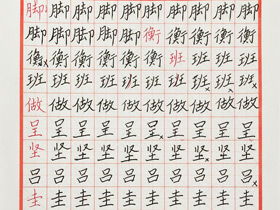 脚脚脚脚脚脚脚脚脚
脚脚脚脚衡衡衡衡衡
衡衡衡衡衡班班班班
班班班班班班班班班
做做做做做做做做做
呈呈呈呈呈呈呈呈呈
坚坚坚坚坚坚坚坚坚
吕吕吕吕吕吕吕吕吕
圭圭圭圭圭圭圭圭圭